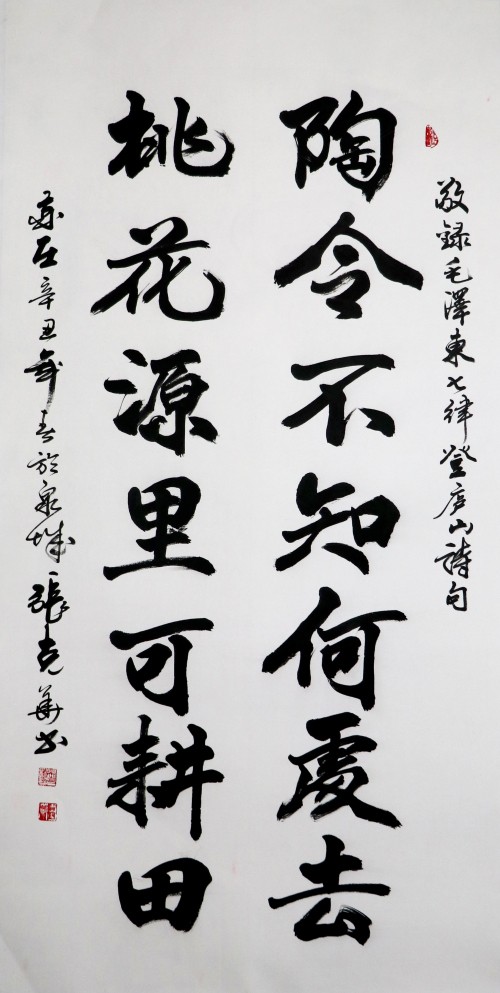 敬録毛澤東七律登庐山詩句
陶令不知何處去
桃花源里可耕田
辛丑年春於泉城張克華书